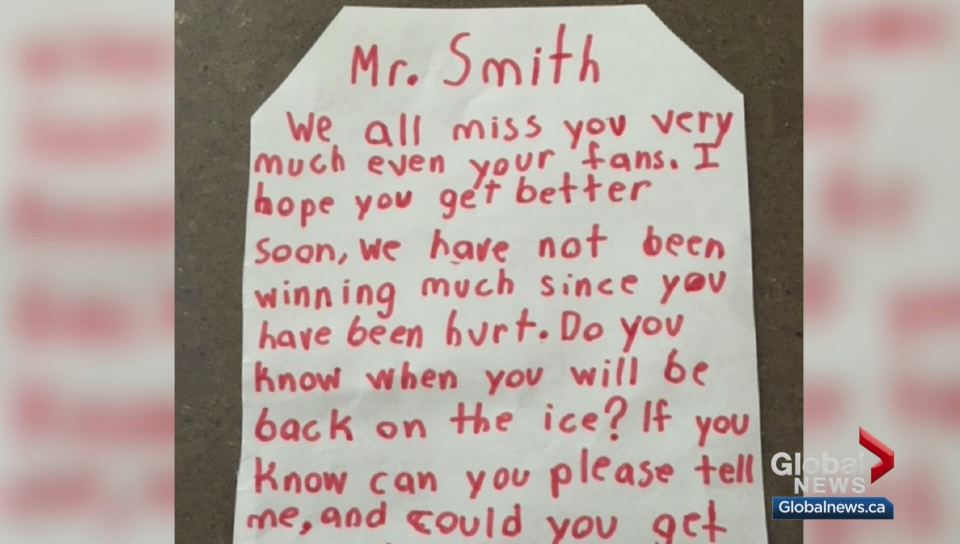 Mr. Smith
We all miss you very
much even your fans. I
hope you get better
soon, we have not been
winning much since you
have been hurt. Do you
know when you will be
back on the ice? If you
know can you please tell
me, and could you get
Global
NEWS
Globalnews.ca